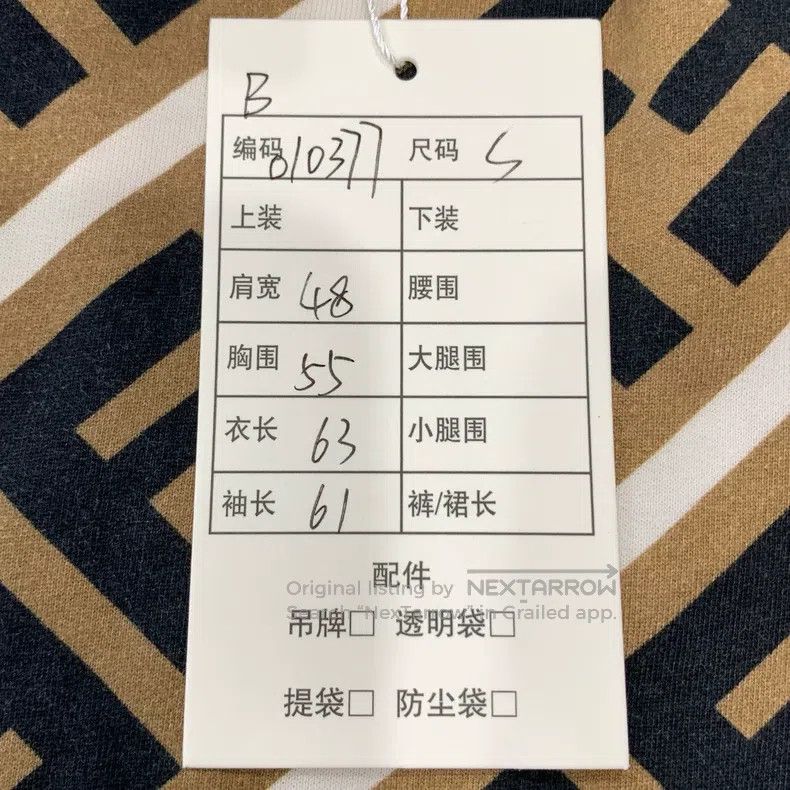 B
编码 010377 尺码 S
上装 下装
肩宽 48 腰围
胸围 55 大腿围
衣长 63 小腿围
袖长 61 裤/裙长
配件
Original listing by NEXTARROW
Search "NexTarrow" in Grailed app.
吊牌□ 透明袋□
提袋□ 防尘袋□